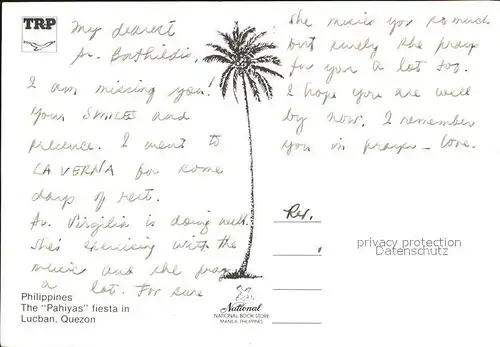 TRP
My dearest
Sr. Bathildis,
I am missing you!
Your SMILES and
presence. I went to
LA VERNA for some
days of rest.
Sr. Virgilia is doing well.
She's exercising with the
music and she prays
a lot. For sure
she misses you so much
but surely she prays
for you a lot too.
I hope you are well
by now. I remember
you in prayer - love.
Rev.
privacy protection
Datenschutz
Philippines
The "Pahiyas" fiesta in
Lucban, Quezon
National
NATIONAL BOOK STORE
MANILA, PHILIPPINES